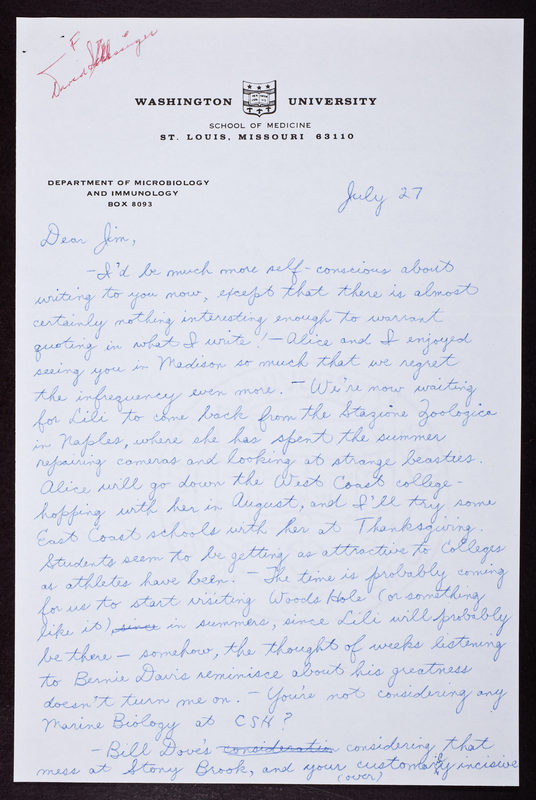 F
David Schlessinger
WASHINGTON UNIVERSITY
SCHOOL OF MEDICINE
ST. LOUIS, MISSOURI 63110
DEPARTMENT OF MICROBIOLOGY
AND IMMUNOLOGY
BOX 8093
July 27
Dear Jim,
- I'd be much more self-conscious about
writing to you now, except that there is almost
certainly nothing interesting enough to warrant
quoting in what I write! - Alice and I enjoyed
seeing you in Madison so much that we regret
the infrequency even more. - We're now waiting
for Lili to come back from the Stazione Zoologica
in Naples, where she has spent the summer
repairing cameras and looking at strange beasties.
Alice will go down the West Coast college-
hopping with her in August, and I'll try some
East Coast schools with her at Thanksgiving.
Students seem to be getting as attractive to Colleges
as athletes have been. - The time is probably coming
for us to start visiting Woods Hole (or something
like it) since in summers, since Lili will probably
be there - somehow, the thought of weeks listening
to Bernie Davis reminisce about his greatness
doesn't turn me on. - You're not considering any
Marine Biology at CSH?
- Bill Dove's consideration considering that
mess at Stony Brook, and your customarily incisive
(over)